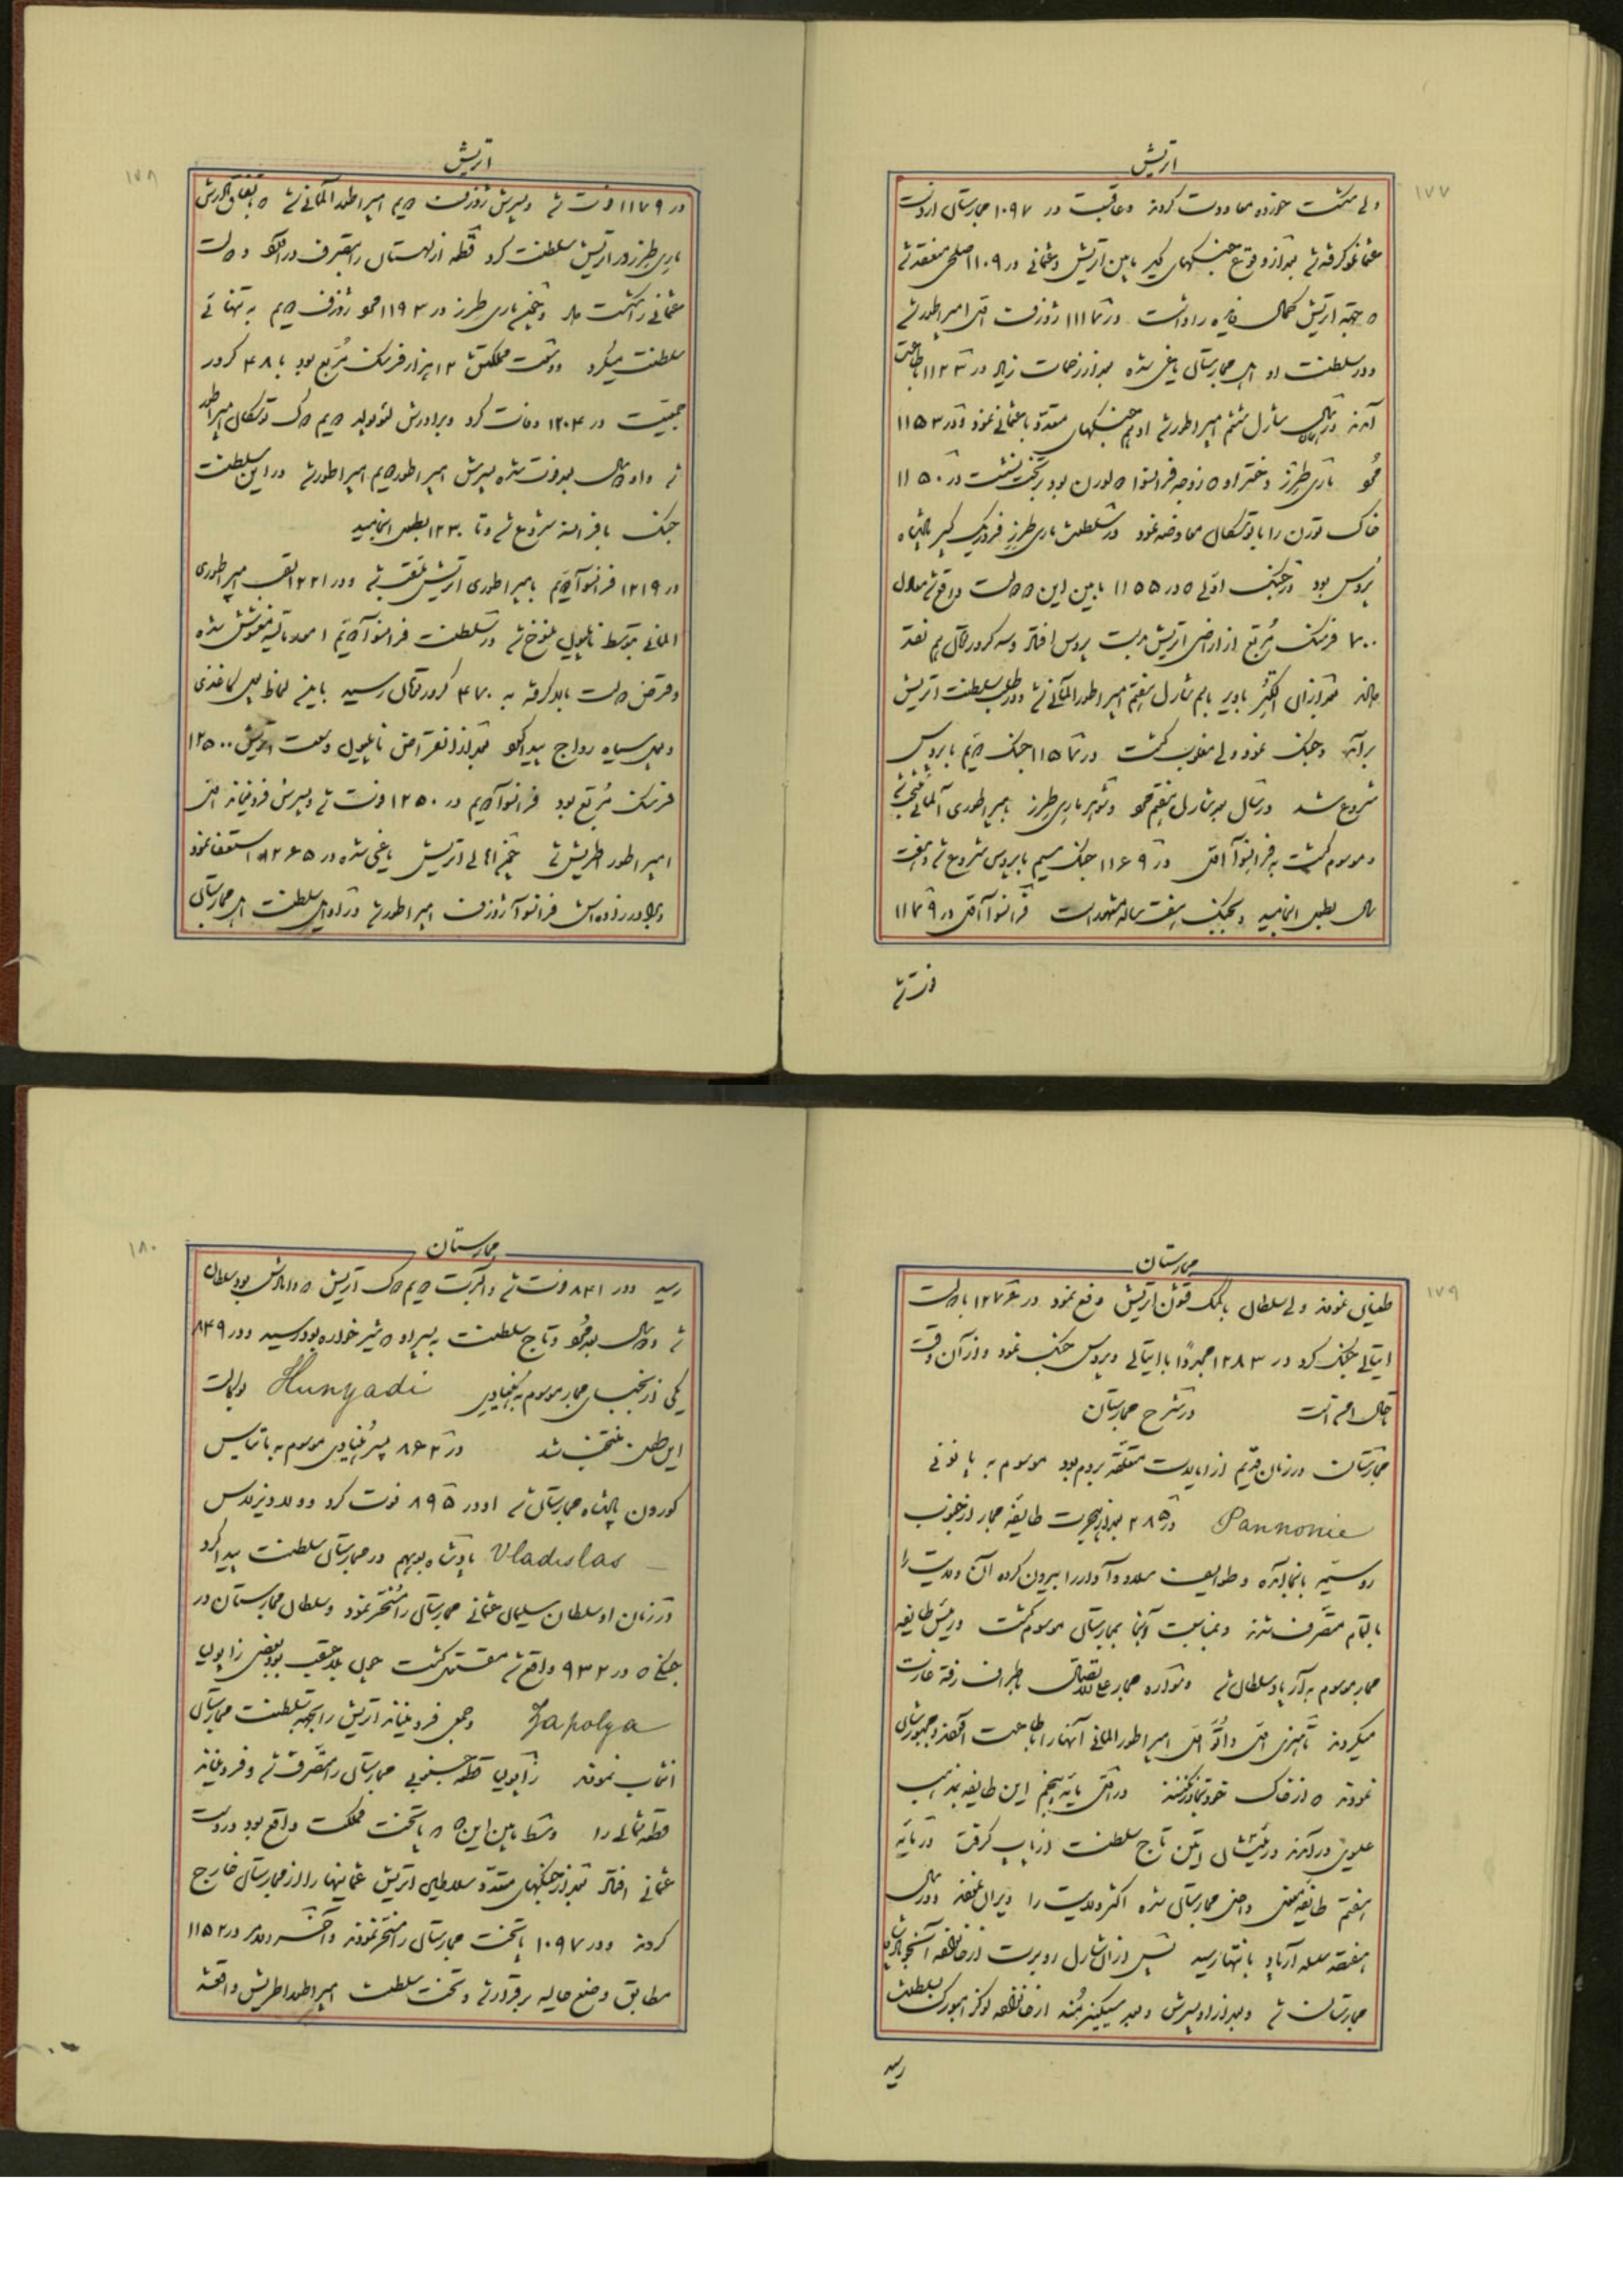 اتریش
۱۷۷
ولی شکست خورده معاودت کردند و عاقبت در ۱۰۹۷ مجارستان از دست
عثمانلو گرفته شد بعد از وقوع جنگهای کبیر مابین اتریش و عثمانی در ۱۱۰۹ صلحی منعقد شد
که بجهة اتریش کمال فایده را داشت در ۱۱۱۷ ژوزف اول امپراطور شد
و در سلطنت او اهل مجارستان یاغی شده بعد از زحمات زیاد در ۱۱۲۳ باطاعت
آمدند شارل ششم امپراطور شد او هم جنگهای متعدد با عثمانی نمود و در ۱۱۵۳
ماری طرز دختر او که زوجه فرانسوا لورن بود بتخت نشست در ۱۱۵۰
خاک لورن را با توسکان معاوضه نمود در سلطنت ماری طرز فردریک کبیر پادشاه
پروس بود در جنگ اولی که در ۱۱۵۵ مابین این دو دولت واقع شد معادل
۱۷۰۰ فرسنگ مربع از اراضی اتریش بدست پروس افتاد و سه کرور تومان هم نقد
بعد از آن باویر باسم شارل هفتم امپراطور آلمانی شد و در طلب سلطنت اتریش
برآمد و جنگ نمود ولی مغلوب گشت در ۱۱۵۷ جنگ دویم با پروس
شروع شد در سال بعد شارل هفتم و شوهر ماری طرز بامپراطوری آلمانی منتخب شد
و موسوم گشت به فرانسوا اول در ۱۱۶۹ جنگ سیم با پروس شروع شد و هفت
سال بطول انجامید و بجنگ هفت ساله مشهور است فرانسوا اول در ۱۱۷۹
فوت شد
اتریش
۱۷۸
در ۱۱۷۹ فوت شد و پسرش ژوزف دویم امپراطور آلمانی شد که باتفاق مادرش
ماری طرز در اتریش سلطنت کرد قطعه از لهستان را بتصرف درآورد و دولت
عثمانی را شکست داد ماری طرز در ۱۱۹۳ ژوزف دویم به تنهائی
سلطنت میکرد وسعت مملکتش ۱۲ هزار فرسنگ مربع بود با ۴۸ کرور
جمعیت در ۱۲۰۴ وفات کرد و برادرش لئوپولد دویم توسکان امپراطور
شد و دو سال بعد فوت شده پسرش امپراطور شد در این سلطنت
جنگ با فرانسه شروع شد و تا ۱۲۳۰ بطول انجامید
در ۱۲۱۹ فرانسوا دویم بامپراطوری اتریش ملقب شد و در ۱۲۲۱ لقب امپراطوری
آلمانی بتوسط ناپلیون منسوخ شد در سلطنت فرانسوا دویم امور مالیه مغشوش شده
و قرض دولت بالا گرفته به ۴۷۰ کرور تومان رسید باین لحاظ پول کاغذی
و پول سیاه رواج پیدا کرد بعد از انقراض ناپلیون وسعت اتریش ۱۲۵۰۰
فرسنگ مربع بود فرانسوا دویم در ۱۲۵۰ فوت شد و پسرش فردیناند اول
امپراطور اطریش شد اهالی اتریش یاغی شده در ۱۲۶۵ استعفا نمود
و برادرزاده‌اش فرانسوا ژوزف امپراطور شد در اوایل سلطنت اهل مجارستان
مجارستان
۱۷۹
طغیان نمودند ولی سلطان بکمک قشون اتریش دفع نمود در ۱۲۷۶ با دولت
ایتالی جنگ کرد در ۱۲۸۳ مجدداً با ایتالی و پروس جنگ نمود و از آن وقت
تا حال است در شرح مجارستان
مجارستان در زمان قدیم از ایالات متعلقه بروم بود موسوم به پانونی
Pannonie در ۲۸۵ بعد از هجرت طایفه مجار از جنوب
روسیه بآنجا آمده و طوایف را بیرون کرده آن ولایت را
بالتمام متصرف شدند و بمناسبت آنها بمجارستان موسوم گشت و رئیس طایفه
مجار موسوم به آرپاد سلطان شد و همواره مجار علی‌الاتصال باطراف رفته غارت
میکردند هانری اول و اتو اول امپراطور آلمانی آنها را باطاعت آورده و مجبورشان
نمودند که از خاک خود تجاوز نکنند در مایه پنجم این طایفه بمذهب
عیسوی درآمدند و رئیسشان اتین تاج سلطنت از پاپ گرفت در مایه
هفتم طایفه مغول داخل مجارستان شده اکثر ولایت را ویران نمودند و در سال
هفتصد سلسله آرپاد بانتها رسید پس از آن شارل روبرت از خانواده آنژو پادشاه
مجارستان شد و بعد از او پسرش و بعد سیگیزمند از خانواده لوکزامبورگ بسلطنت
رسید
مجارستان
۱۸۰
رسید و در ۸۴۱ فوت شد و آلبرت دویم اتریش که دامادش بود سلطان
شد و دو سال بعد و تاج سلطنت به پسر او که شیرخواره بود رسید و در ۸۴۹
یکی از نجبای مجار موسوم به هنیادی Hunyadi بایالت
این وطن منتخب شد در ۸۶۲ پسر هنیادی موسوم به ماتیاس
کورون پادشاه مجارستان شد او در ۸۹۵ فوت کرد و ولادیزلاس
Vladislas پادشاه بوهم در مجارستان سلطنت پیدا کرد
در زمان او سلطان سلیمان عثمانی مجارستان را مسخر نمود و سلطان مجارستان در
جنگی که در ۹۳۲ واقع شد مقتول گشت چون بلاعقب بود بعضی زاپولیا
Zapolya و جمعی فردیناند اتریش را بجهة سلطنت مجارستان
انتخاب نمودند زاپولیا قطعه جنوبی مجارستان را متصرف شد و فردیناند
قطعه شمالی را وسط مابین این دو که پایتخت مملکت واقع بود در دست
عثمانی افتاد بعد از جنگهای متعدد سلاطین اتریش عثمانیها را از مجارستان خارج
کردند و در ۱۰۹۷ پایتخت مجارستان را مسخر نمودند و در ۱۱۵۲
مطابق وضع حالیه برقرار شد و تحت سلطنت امپراطور اطریش واقعند